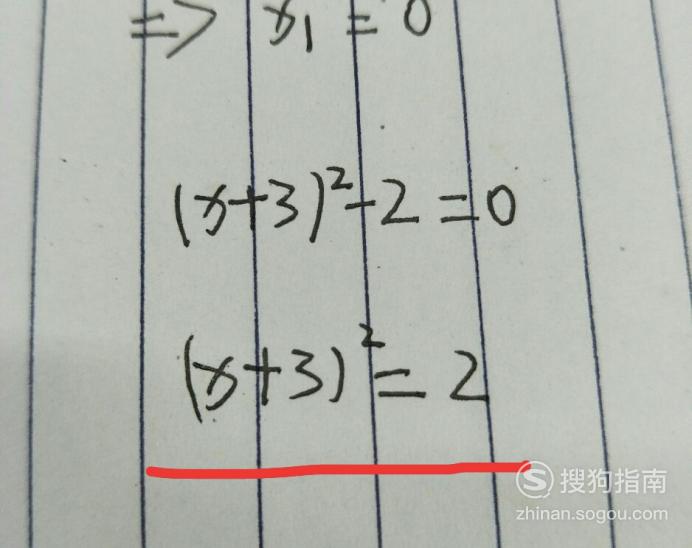 => x₁ = 0
(x+3)²-2=0
(x+3)²=2
S 搜狗指南
zhinan.sogou.com